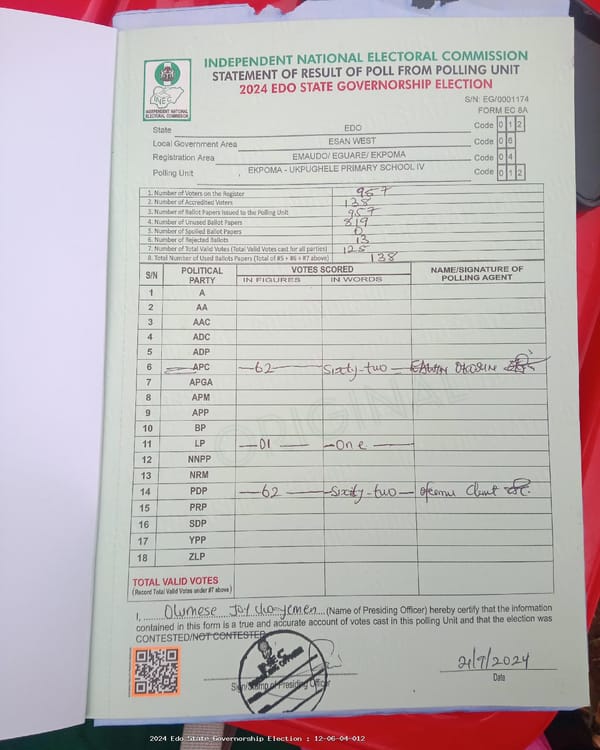 INDEPENDENT NATIONAL ELECTORAL COMMISSION
STATEMENT OF RESULT OF POLL FROM POLLING UNIT
2024 EDO STATE GOVERNORSHIP ELECTION
INEC
INDEPENDENT NATIONAL ELECTORAL COMMISSION
S/N: EG/0001174
FORM EC 8A
State EDO Code 0 1 2
Local Government Area ESAN WEST Code 0 6
Registration Area EMAUDO/ EGUARE/ EKPOMA Code 0 4
Polling Unit EKPOMA - UKPUGHELE PRIMARY SCHOOL IV Code 0 1 2
1. Number of Voters on the Register 957
2. Number of Accredited Voters 138
3. Number of Ballot Papers Issued to the Polling Unit 957
4. Number of Unused Ballot Papers 819
5. Number of Spoiled Ballot Papers 0
6. Number of Rejected Ballots 13
7. Number of Total Valid Votes (Total Valid Votes cast for all parties) 125
8. Total Number of Used Ballots Papers (Total of #5 + #6 + #7 above) 138
S/N POLITICAL PARTY VOTES SCORED NAME/SIGNATURE OF POLLING AGENT
IN FIGURES IN WORDS
1 A
2 AA
3 AAC
4 ADC
5 ADP
6 APC 62 Sixty-two
7 APGA
8 APM
9 APP
10 BP
11 LP 01 One
12 NNPP
13 NRM
14 PDP 62 Sixity-two
15 PRP
16 SDP
17 YPP
18 ZLP
ORIGINAL
TOTAL VALID VOTES
(Record Total Valid Votes under #7 above)
I, Olumese Joy (Name of Presiding Officer) hereby certify that the information
contained in this form is a true and accurate account of votes cast in this polling Unit and that the election was
CONTESTED/NOT CONTESTED
INEC
Sign/Stamp of Presiding Officer
21/9/2024
Date
2024 Edo State Governorship Election : 12-06-04-012